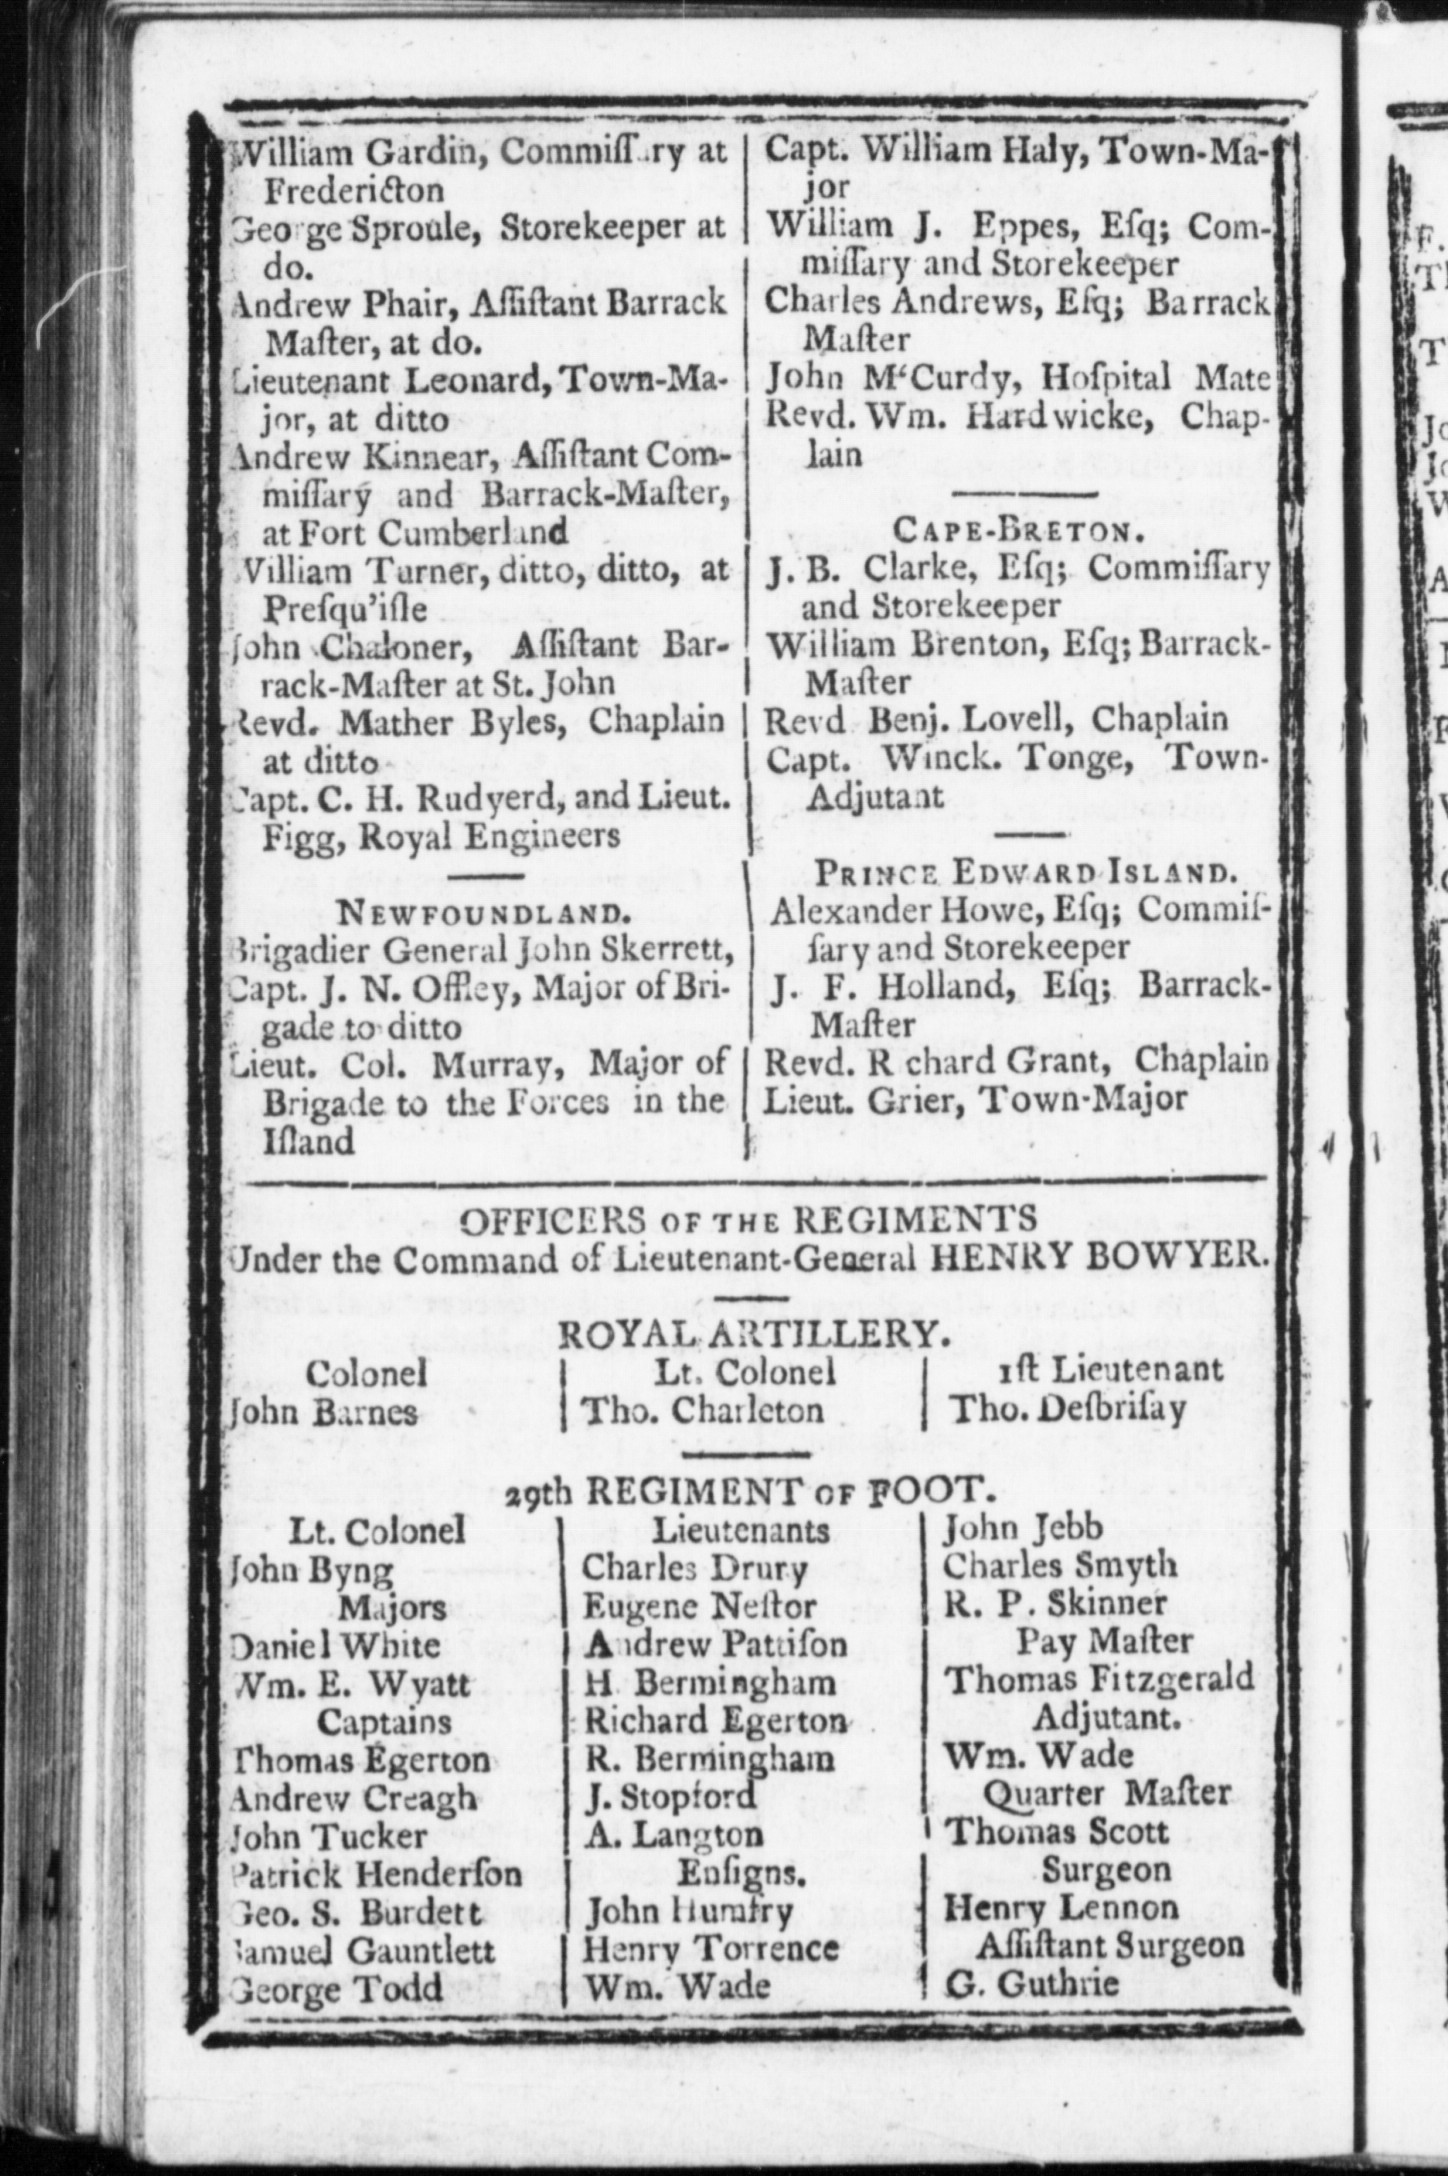 William Gardin, Commiſſary at
Frederiƈton
George Sproule, Storekeeper at
do.
Andrew Phair, Aſſiſtant Barrack
Maſter, at do.
Lieutenant Leonard, Town-Ma-
jor, at ditto
Andrew Kinnear, Aſſiſtant Com-
miſſary and Barrack-Maſter,
at Fort Cumberland
William Turner, ditto, ditto, at
Preſqu'iſle
John Chaloner, Aſſiſtant Bar-
rack-Maſter at St. John
Revd. Mather Byles, Chaplain
at ditto
Capt. C. H. Rudyerd, and Lieut.
Figg, Royal Engineers
NEWFOUNDLAND.
Brigadier General John Skerrett,
Capt. J. N. Offley, Major of Bri-
gade to ditto
Lieut. Col. Murray, Major of
Brigade to the Forces in the
Iſland
Capt. William Haly, Town-Ma-
jor
William J. Eppes, Eſq; Com-
miſſary and Storekeeper
Charles Andrews, Eſq; Barrack
Maſter
John M'Curdy, Hoſpital Mate
Revd. Wm. Hardwicke, Chap-
lain
CAPE-BRETON.
J. B. Clarke, Eſq; Commiſſary
and Storekeeper
William Brenton, Eſq; Barrack-
Maſter
Revd Benj. Lovell, Chaplain
Capt. Winck. Tonge, Town-
Adjutant
PRINCE EDWARD ISLAND.
Alexander Howe, Eſq; Commiſ-
ſary and Storekeeper
J. F. Holland, Eſq; Barrack-
Maſter
Revd. R chard Grant, Chaplain
Lieut. Grier, Town-Major
OFFICERS OF THE REGIMENTS
Under the Command of Lieutenant-General HENRY BOWYER.
ROYAL ARTILLERY.
Colonel
John Barnes
Lt. Colonel
Tho. Charleton
1ſt Lieutenant
Tho. Deſbriſay
29th REGIMENT OF FOOT.
Lt. Colonel
John Byng
Majors
Daniel White
Wm. E. Wyatt
Captains
Thomas Egerton
Andrew Creagh
John Tucker
Patrick Henderſon
Geo. S. Burdett
Samuel Gauntlett
George Todd
Lieutenants
Charles Drury
Eugene Neſtor
Andrew Pattiſon
H. Bermingham
Richard Egerton
R. Bermingham
J. Stopford
A. Langton
Enſigns.
John Humfry
Henry Torrence
Wm. Wade
John Jebb
Charles Smyth
R. P. Skinner
Pay Maſter
Thomas Fitzgerald
Adjutant.
Wm. Wade
Quarter Maſter
Thomas Scott
Surgeon
Henry Lennon
Aſſiſtant Surgeon
G. Guthrie